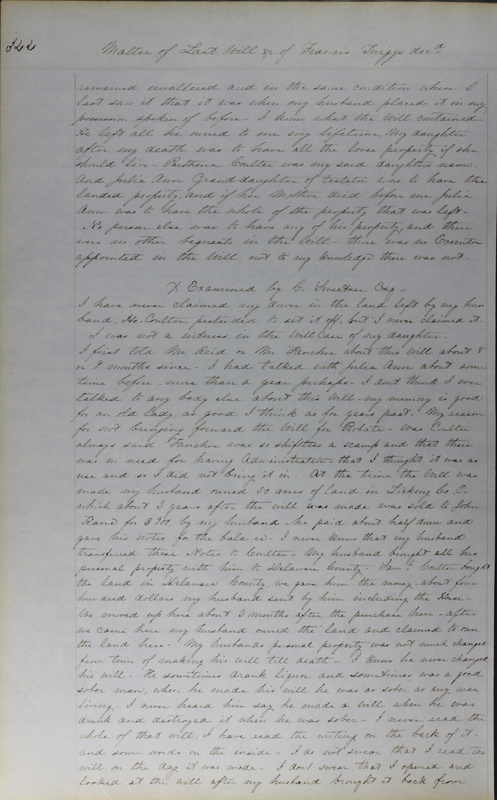 322
Matter of Last Will &c of Francis Twiggs decd
remained unaltered and in the same condition when I
last saw it that it was when my husband placed it in my
possession spoken of before - I know what the Will contained -
He left all he owned to me my lifetime My daughter
after my death was to have all the loose property if she
should live - Coulter was my said daughters name
And Julia Ann Grand-daughter of testator was to have the
landed property, and if her Mother died before me Julia
Ann was to have the whole of the property that was left -
No person else was to have any of his property, and there
were no other bequests in the Will - there was no Executor
appointed in the Will, not to my knowledge there was not -
X Examined by C. Sweetser Esq -
I have never claimed my dower in the land left by my hus-
band. Mr Coulter pretended to set it off, but I never claimed it.
I was not a witness in the Will case of my daughter.
I first told Mr Reid or Mr Fancher about this will about 8
or 9 months since - I had talked with Julia Ann about some
time before - more than a year perhaps - I dont think I ever
talked to any body else about this Will - my memory is good
for an old lady, as good I think as for years past. My reason
for not bringing forward the Will for Probate - was Coulter
always said Fancher was so shiftless a scamp and that there
was no need for having Administration - that I thought it was no
use and so I did not bring it in. At the time the Will was
made my husband owned 50 acres of land in Licking Co. O.
which about 3 years after the will was made was sold to John
Rand for $ by my husband - he paid about half down and
gave his notes for the balance - I never knew that my husband
transferred these Notes to Coulter - My husband brought all his
personal property with him to Delaware County - Coulter bought
the land in Delaware County, we gave him the money - about four
hundred dollars my husband sent by him including the Horse -
We moved up here about 3 months after the purchase here - after
we came here my husband owned the land and claimed to own
the land here - My husbands personal property was not much changed
from time of making his will till death - I know he never changed
his will. He sometimes drank liquor and sometimes was a good
sober man, when he made his will he was as sober as any man
living - I never heard him say he made a will when he was
drunk and destroyed it when he was sober - I never read the
whole of that will, I have read the writing on the back of it -
and some words on the inside - I do not swear that I read the
will on the day it was made - I dont swear that I opened and
looked at the will after my husband brought it back from